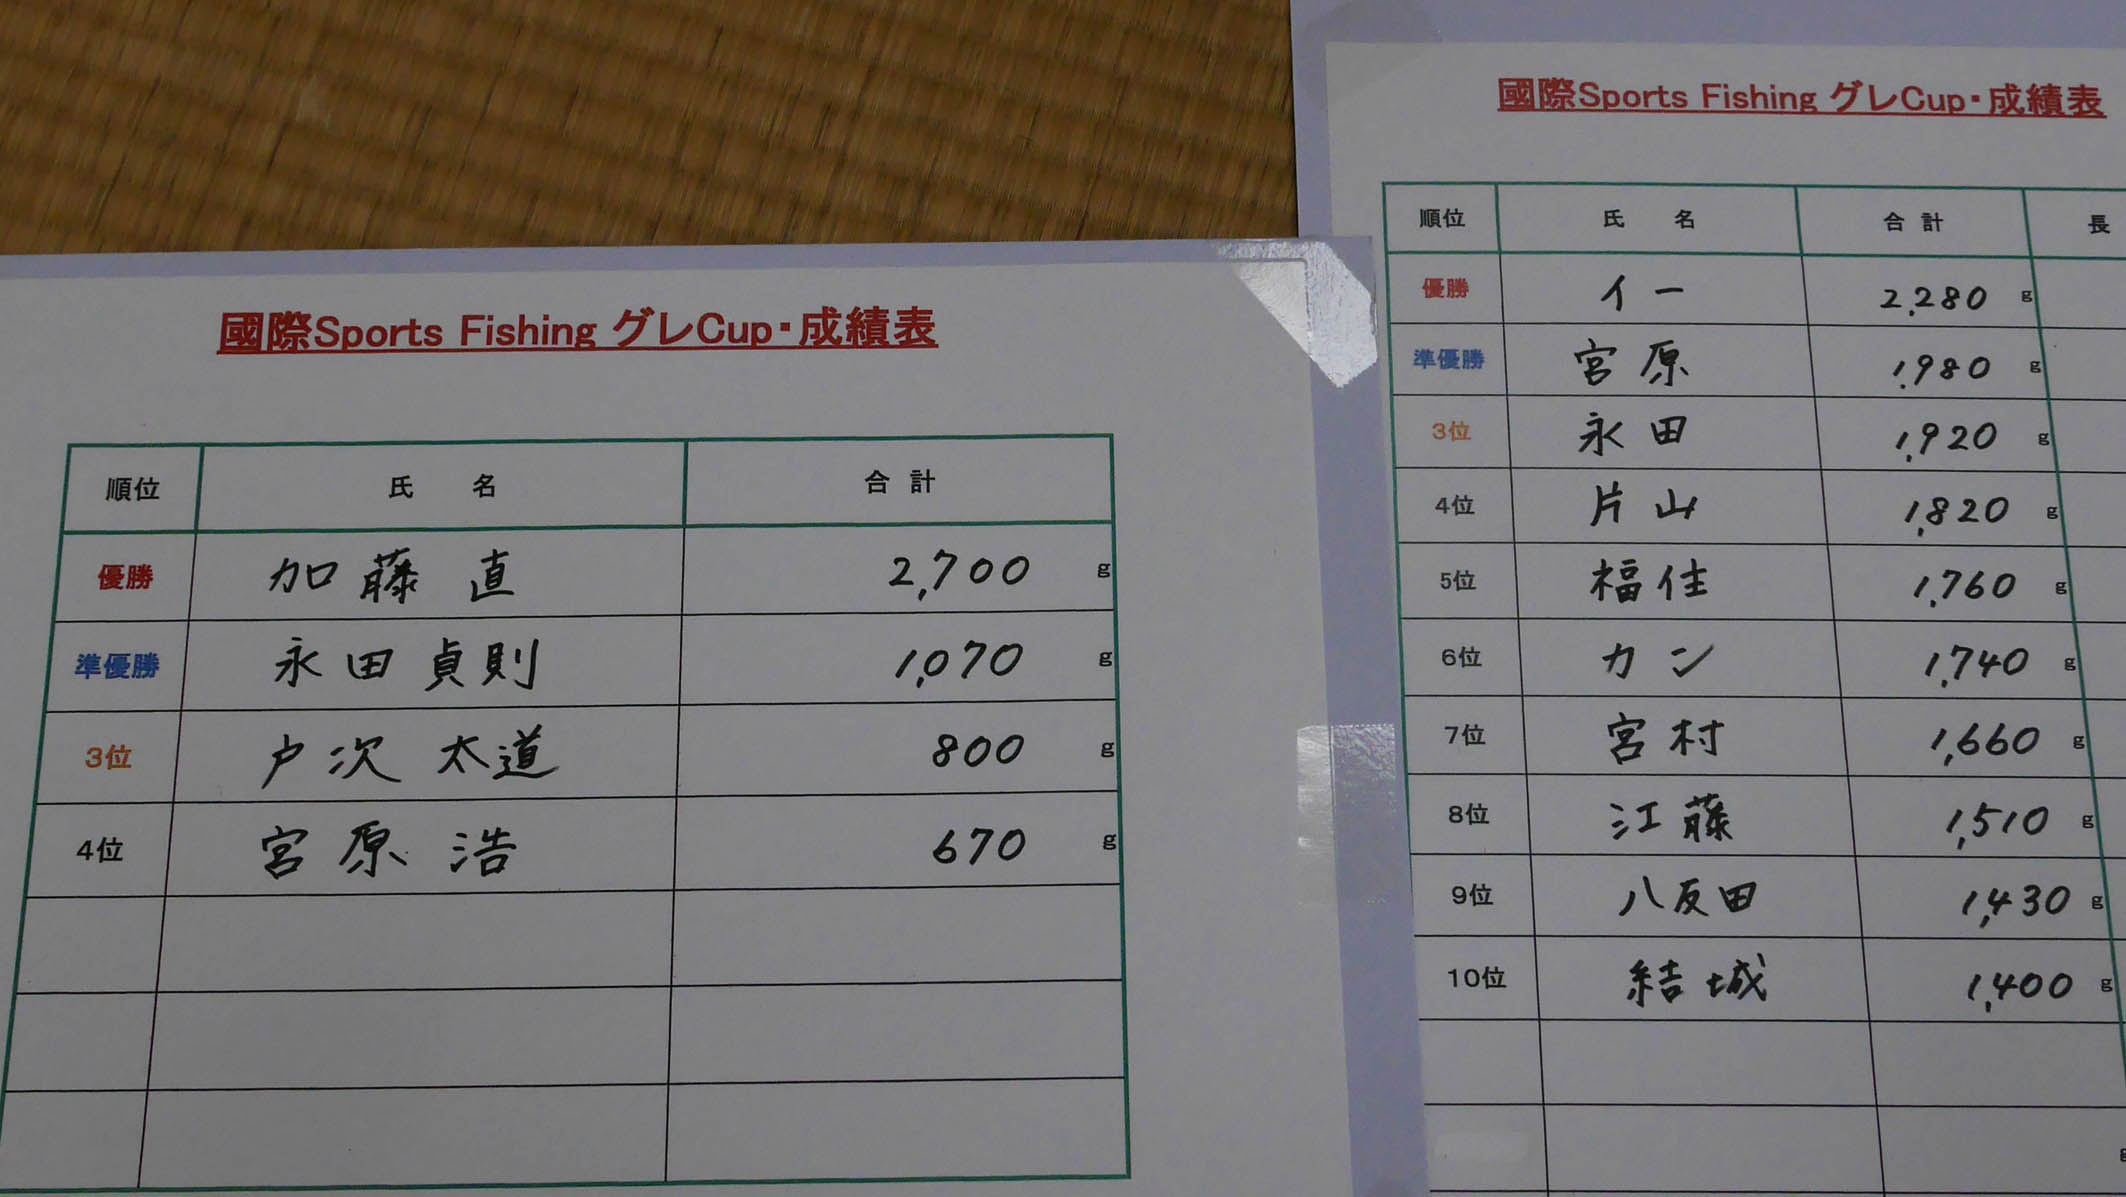 國際Sports Fishing グレCup・成績表
順位 氏 名 合 計
優勝 加藤 直 2,700 g
準優勝 永田貞則 1,070 g
3位 戸次 太道 800 g
4位 宮原 浩 670 g
國際Sports Fishing グレCup・成績表
順位 氏 名 合 計 長
優勝 イー 2,280 g
準優勝 宮原 1,980 g
3位 永田 1,920 g
4位 片山 1,820 g
5位 福住 1,760 g
6位 カン 1,740 g
7位 宮村 1,660 g
8位 江藤 1,510 g
9位 八反田 1,430 g
10位 結城 1,400 g
g